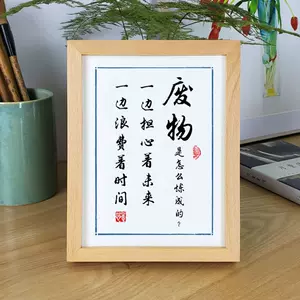 废物
是怎么炼成的？
一边担心着未来
一边浪费着时间